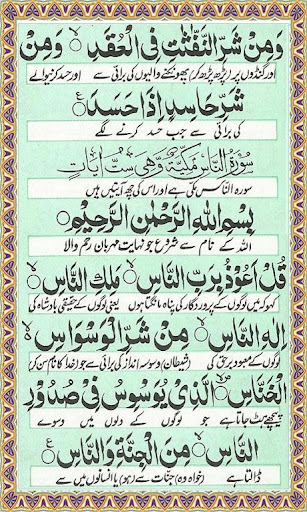 وَمِنْ شَرِّ النَّفّٰثٰتِ فِی الْعُقَدِ ۙ وَمِنْ
اور گنڈوں پر (پڑھ پڑھ کر) پھونکنے والیوں کی برائی سے اور حسد کرنیوالے
شَرِّ حَاسِدٍ اِذَا حَسَدَ ۧ
کی برائی سے جب حسد کرنے لگے
سُوْرَۃُ النَّاسِ مَکِّیَّۃٌ وَّهِیَ سِتُّ اٰیَاتٍ
سورہ الناس مکی ہے اور اس کی چھ آیتیں ہیں
بِسْمِ اللّٰهِ الرَّحْمٰنِ الرَّحِیْمِ
اللہ کے نام سے شروع جو نہایت مہربان رحم والا
قُلْ اَعُوْذُ بِرَبِّ النَّاسِ ۙ مَلِكِ النَّاسِ ۙ
کہو کہ میں لوگوں کے پروردگار کی پناہ مانگتا ہوں یعنی لوگوں کے حقیقی بادشاہ کی
اِلٰهِ النَّاسِ ۙ مِنْ شَرِّ الْوَسْوَاسِ
لوگوں کے معبود برحق کی (شیطان) وسوسہ انداز کی برائی سے جو (خدا کا نام سن کر)
الْخَنَّاسِ ۙ الَّذِیْ یُوَسْوِسُ فِیْ صُدُوْرِ
پیچھے ہٹ جاتا ہے جو لوگوں کے دلوں میں وسوسے
النَّاسِ ۙ مِنَ الْجِنَّةِ وَالنَّاسِ ۧ
ڈالتا ہے (خواہ وہ) جنات سے (ہو) یا انسانوں میں سے